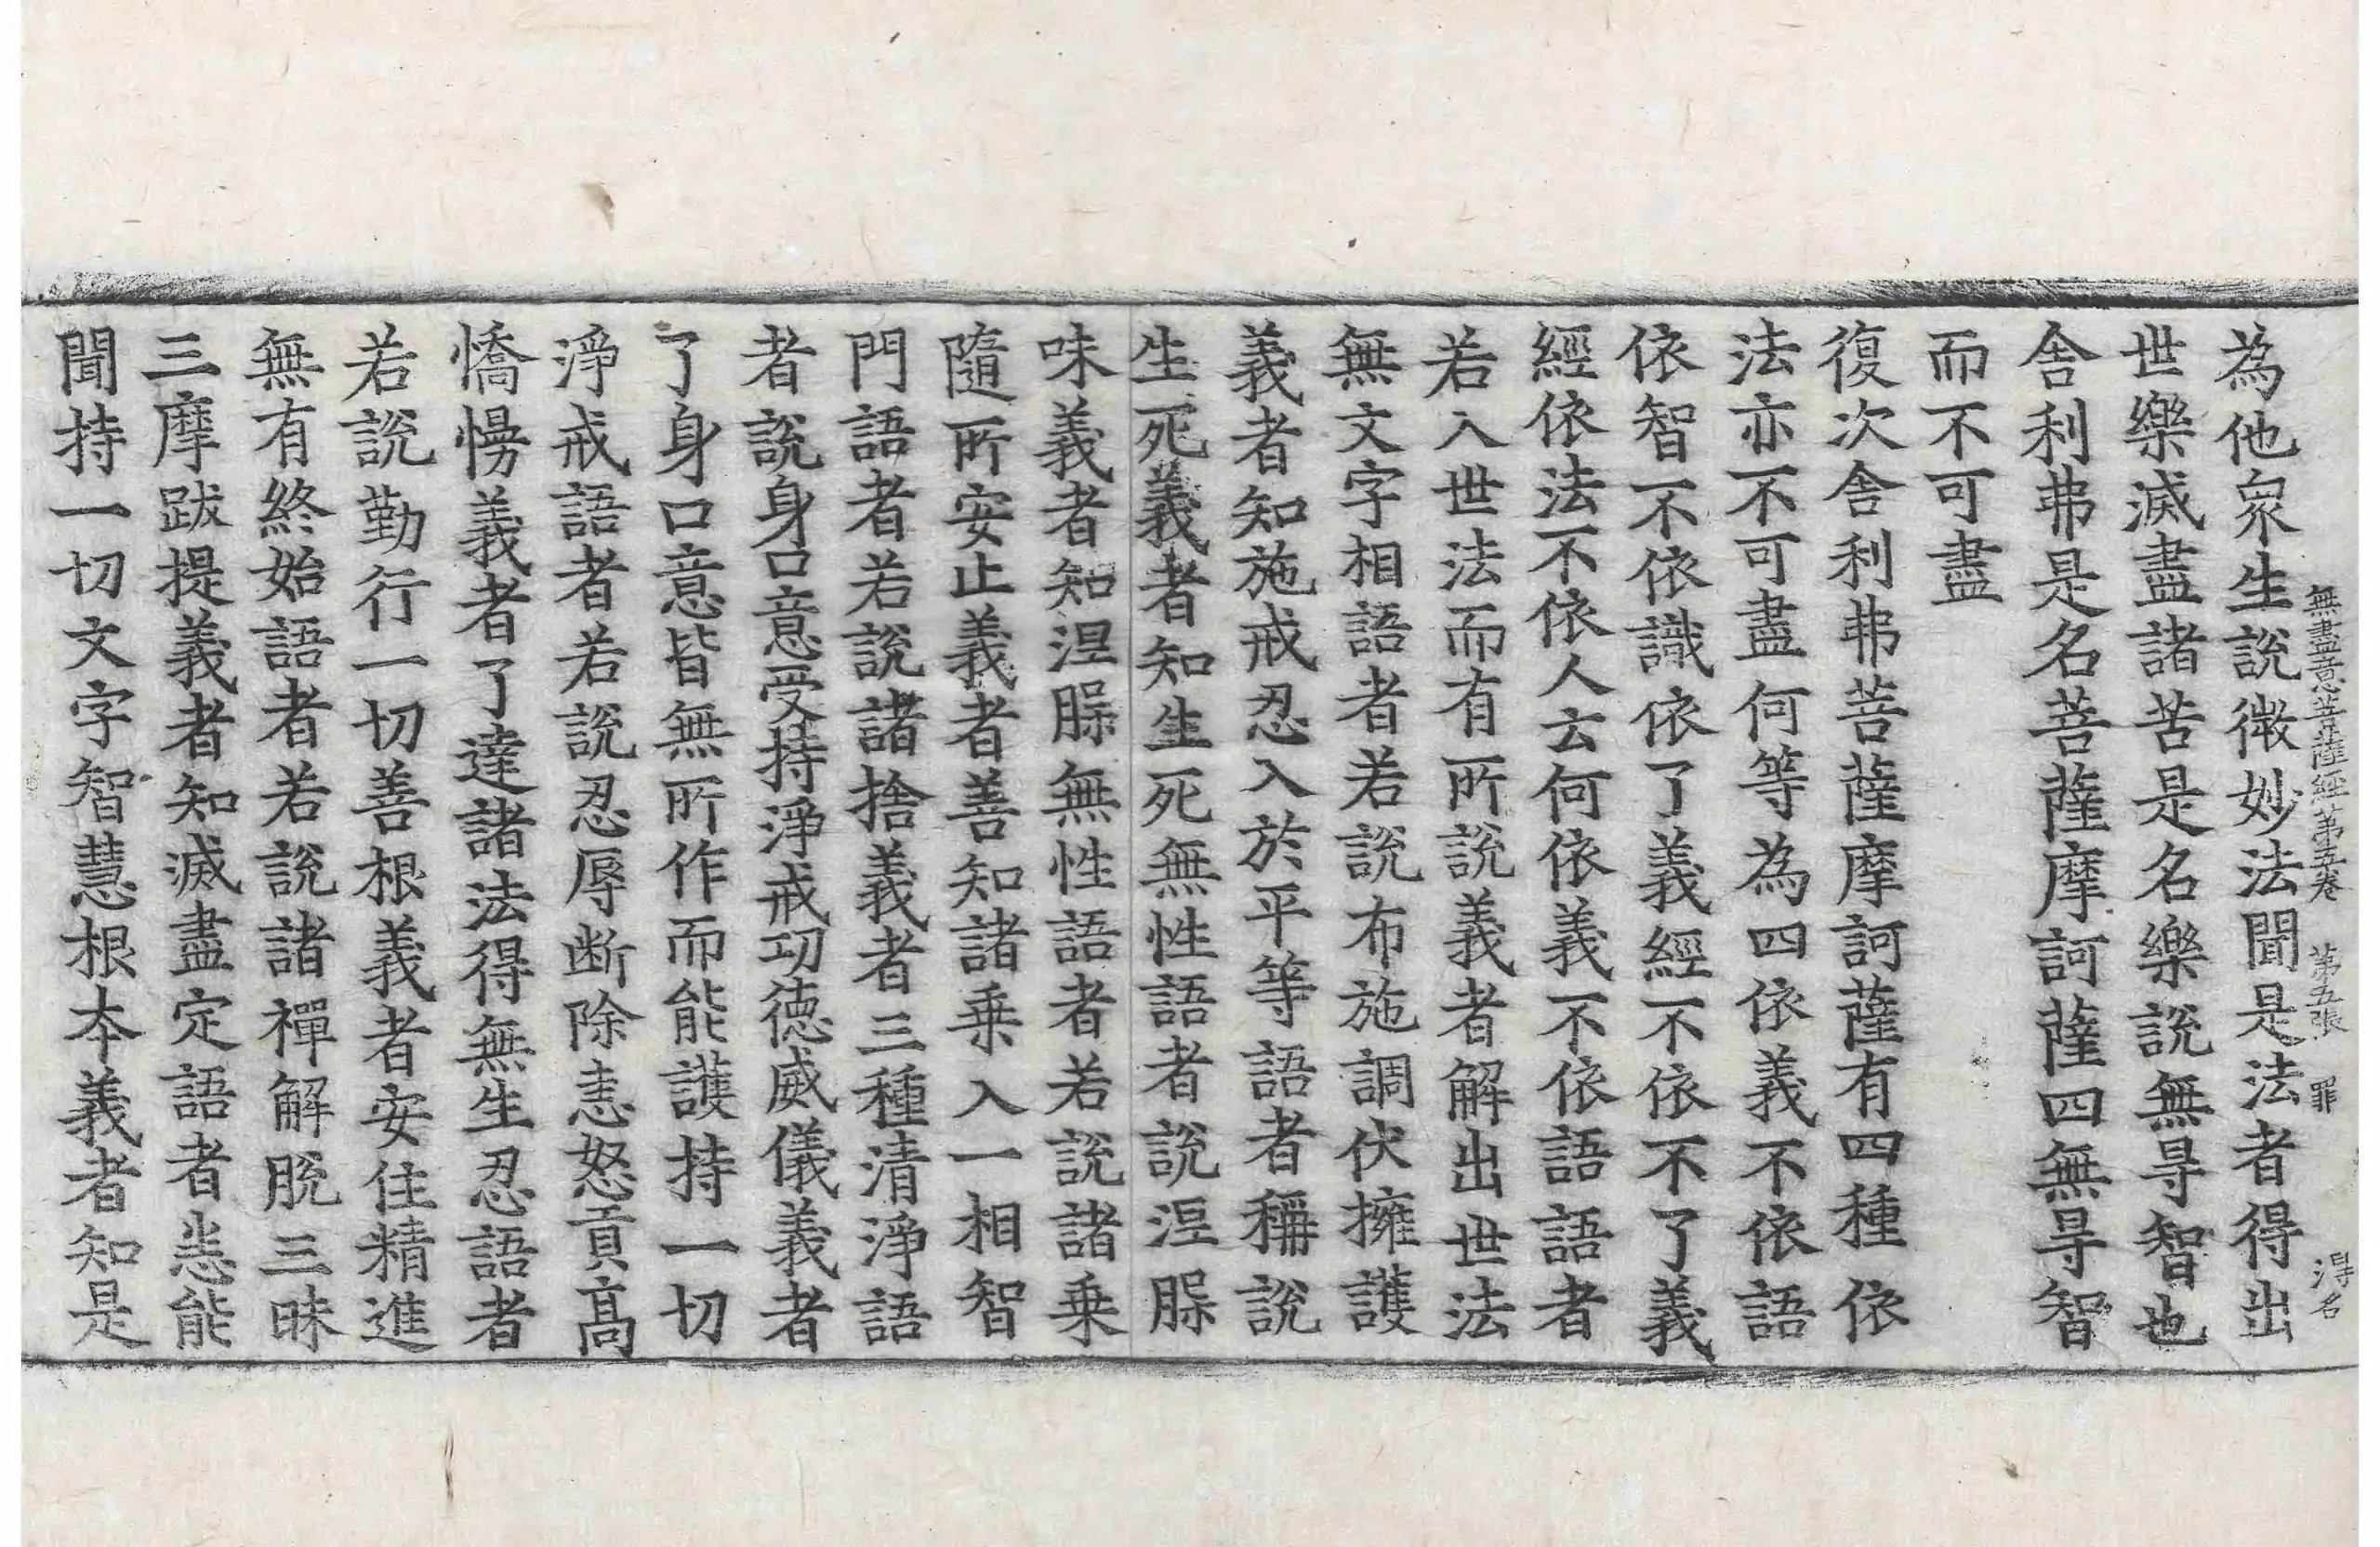 無盡意菩薩經第五卷 第五張 罪 淂名
為他衆生說微妙法聞是法者得出
世樂滅盡諸苦是名樂說無㝵智也
舍利弗是名菩薩摩訶薩四無㝵智
而不可盡
復次舍利弗菩薩摩訶薩有四種依
法亦不可盡何等為四依義不依語
依智不依識依了義經不依不了義
經依法不依人云何依義不依語語者
若入世法而有所說義者解出世法
無文字相語者若說布施調伏擁護
義者知施戒忍入於平等語者稱說
生死義者知生死無性語者說涅槃
味義者知涅槃無性語者若說諸乗
隨所安止義者善知諸乗入一相智
門語者若說諸捨義者三種清淨語
者說身口意受持淨戒功德威儀義者
了身口意皆無所作而能護持一切
淨戒語者若說忍辱断除恚怒貢髙
憍慢義者了達諸法得無生忍語者
若說勤行一切善根義者安住精進
無有終始語者若說諸禪解脫三昧
三摩跋提義者知滅盡定語者悉能
聞持一切文字智慧根夲義者知是